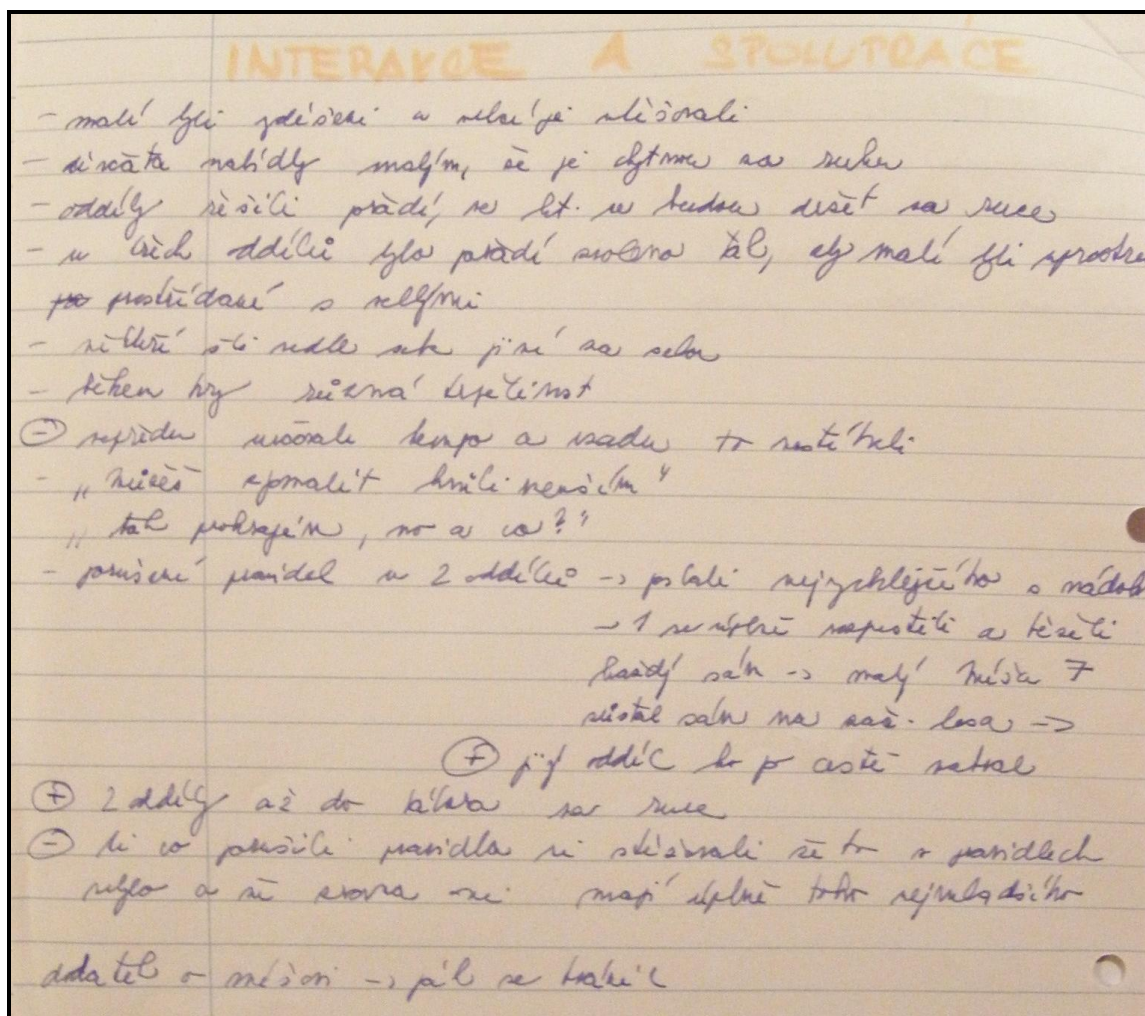 INTERAKCE A SPOLUPRÁCE
- malí byli zděšeni a velcí je utěšovali
- děvčata nabídly malým, že je chytnou za ruku
- oddíly řešili pořadí, ve kt. se budou držet za ruce
- u všech oddílů bylo pořadí zvoleno tak, aby malí byli uprostře
prostřídaní s velkými
- někteří šli vedle sebe jiní za sebou
- během hry různá
- vepředu udávali tempo a vzadu to nestíhali
- „můžeš zpomalit kvůli menším"
„tak prohrajem, no a co?"
- porušení pravidel u 2 oddílů -> poslali nejrychlejšího s nádob
- 1 se úplně rozpustili a běželi
každý sám -> malý Míša 7
zůstal sám na zač. lesa ->
+ jiný oddíl ho po cestě sebral
+ 2 oddíly až do tábora za ruce
- ti co porušili pravidla si stěžovali že to v pravidlech
nebylo a že zrovna oni mají úplně toho nejmladšího
dodatek o Míšovi -> pak se